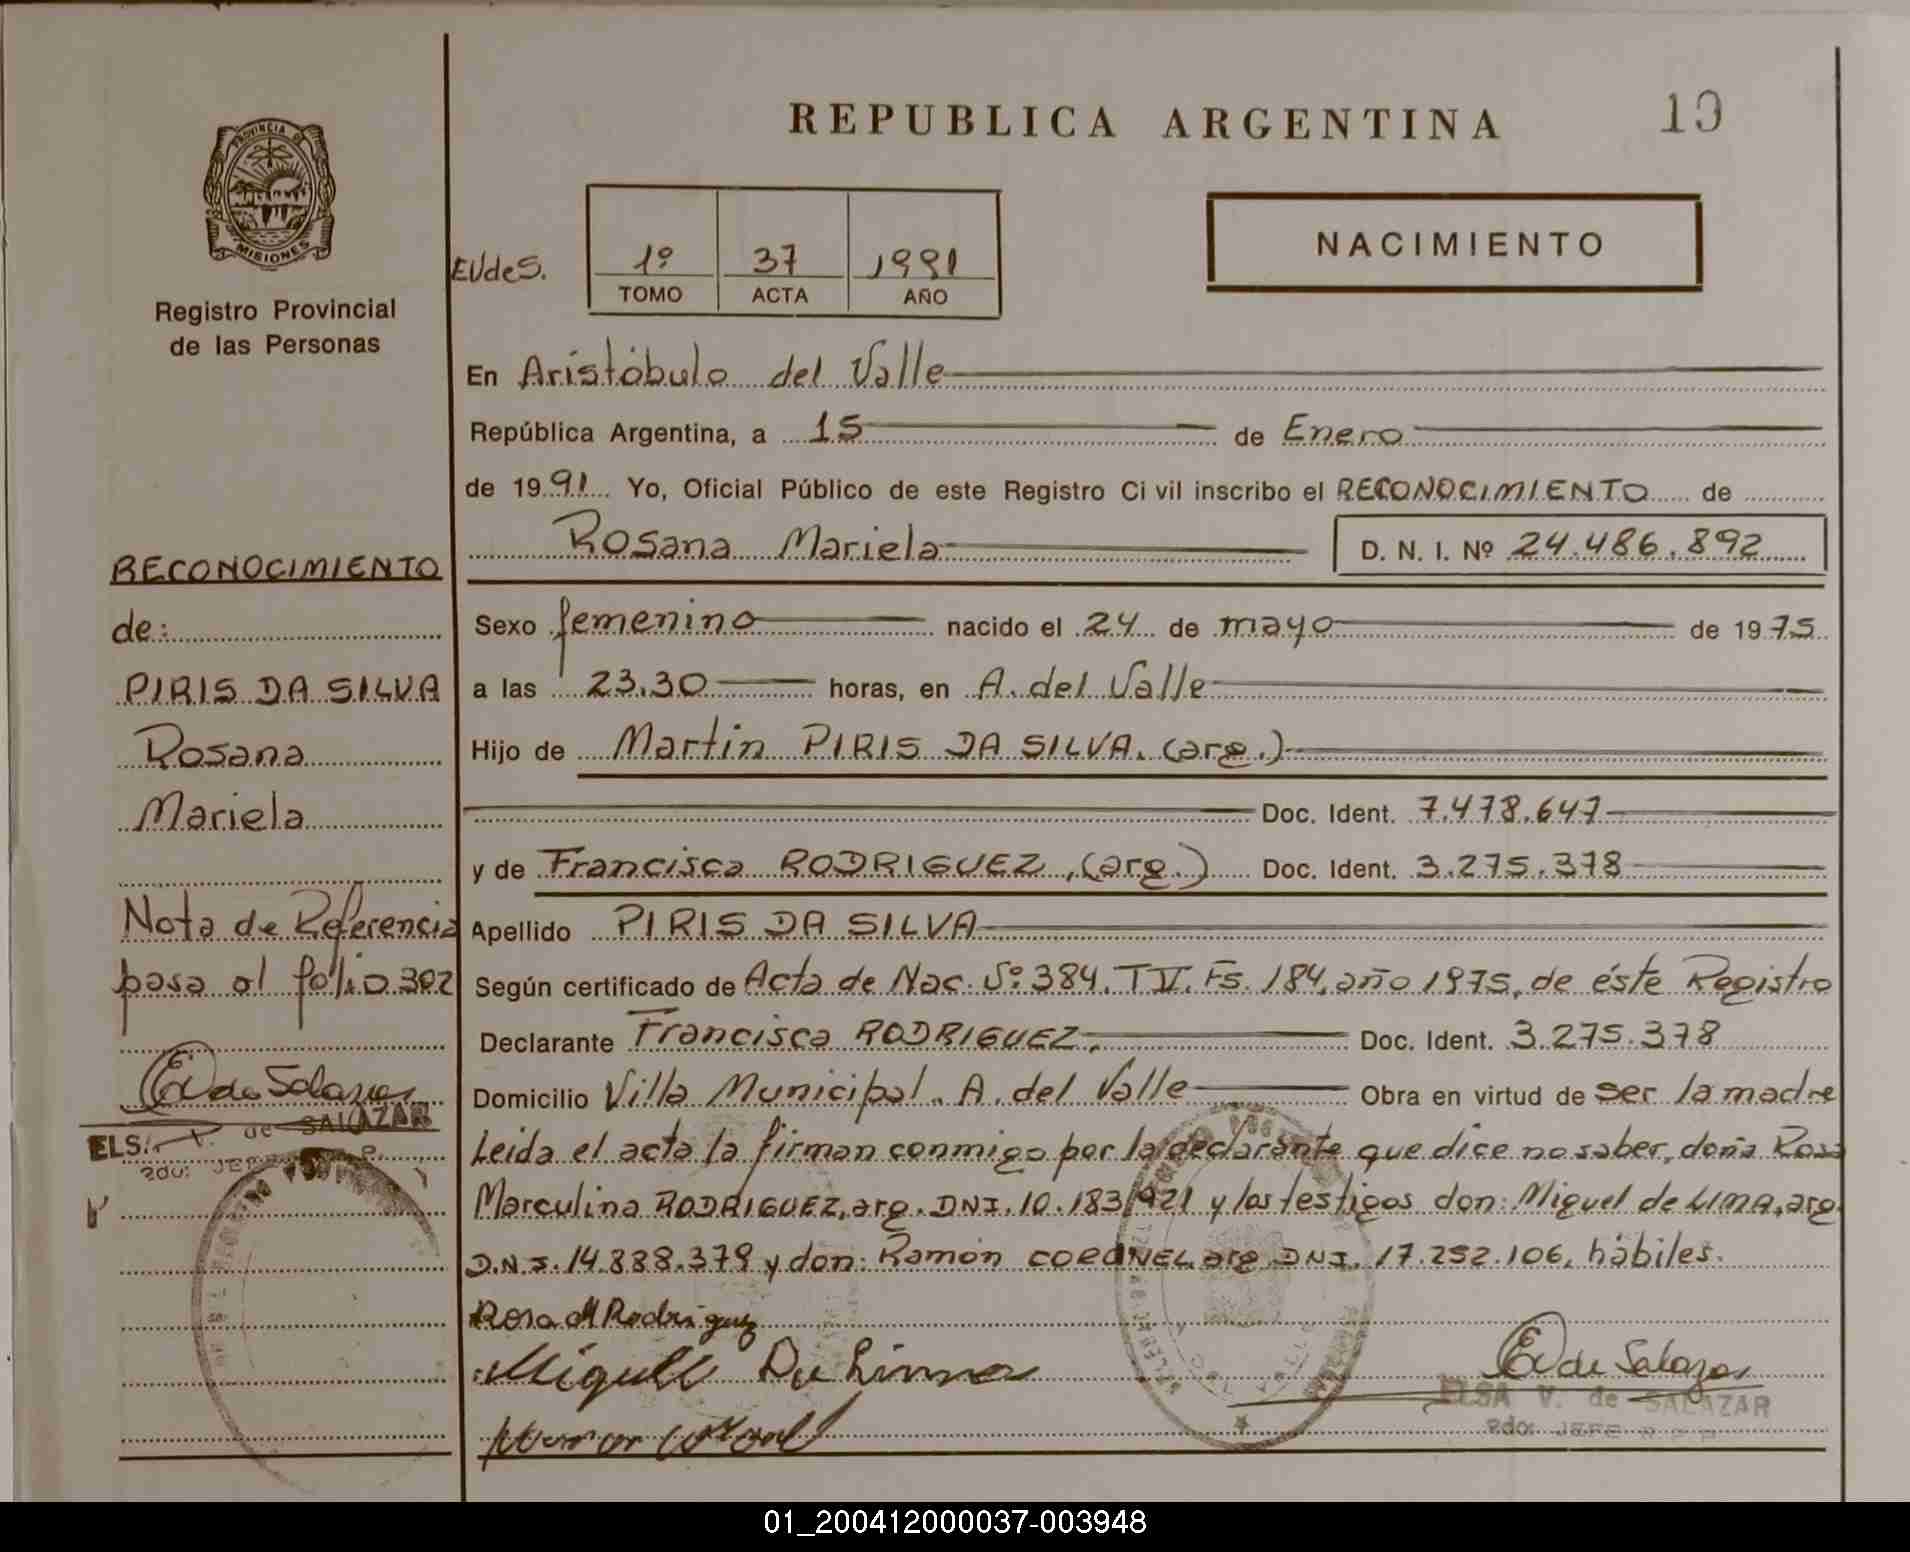 REPUBLICA ARGENTINA
19
PROVINCIA DE
MISIONES
Registro Provincial
de las Personas
EVdeS.
1º 37 1991
TOMO ACTA AÑO
NACIMIENTO
En Aristóbulo del Valle
República Argentina, a 15 de Enero
de 1991 Yo, Oficial Público de este Registro Civil inscribo el RECONOCIMIENTO de
Rosana Mariela D. N. I. Nº 24.486.892
Sexo femenino nacido el 24 de mayo de 1975
a las 23.30 horas, en A. del Valle
Hijo de Martin PIRIS DA SILVA. (arg.)
Doc. Ident. 7.478.647
y de Francisca RODRIGUEZ, (arg.) Doc. Ident. 3.275.378
Apellido PIRIS DA SILVA
Según certificado de Acta de Nac. Nº 384. T IV. Fs. 184, año 1975, de éste Registro
Declarante Francisca RODRIGUEZ. Doc. Ident. 3.275.378
Domicilio Villa Municipal. A. del Valle Obra en virtud de ser la madre
Leida el acta la firman conmigo por la declarante que dice no saber, doña Rosa
Marculina RODRIGUEZ, arg. DNI. 10.183.921 y los testigos don: Miguel de LIMA, arg.
D.N.I. 14.888.379 y don: Ramón CORONEL, arg. DNI. 17.252.106, hábiles.
Rosa M Rodriguez
Miguel De Lima
EV de Salazar
ELSA V. de SALAZAR
2do. JEFE R.P.P.
RECONOCIMIENTO
de:
PIRIS DA SILVA
Rosana
Mariela
Nota de Referencia
pasa al folio 302
EV de Salazar
ELSA V. de SALAZAR
2do. JEFE
01_200412000037-003948